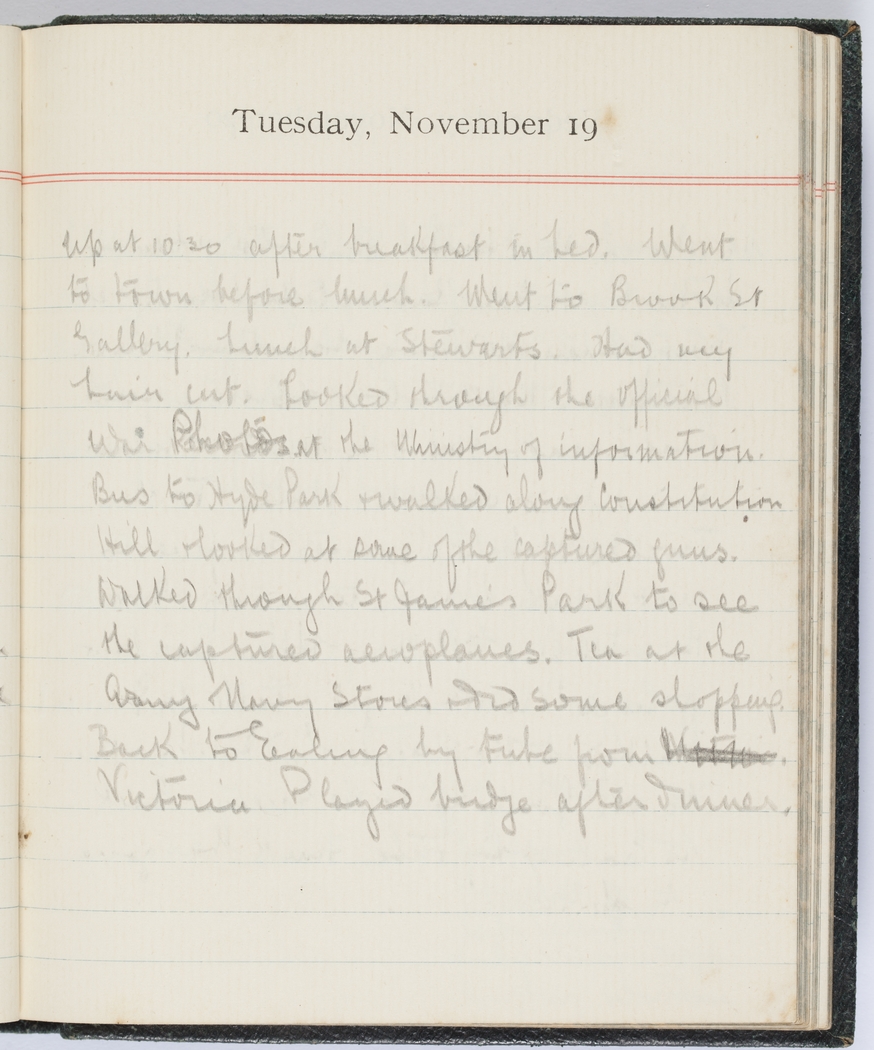 Tuesday, November 19
Up at 10 30 after breakfast in bed. Went
to town before lunch. Went to Brook St
Gallery. Lunch at Stewarts. Had my
hair cut. Looked through the official
War Photos at the Ministry of information.
Bus to Hyde Park & walked along Constitution
Hill & looked at some of the captured guns.
Walked through St James's Park to see
the captured aeroplanes. Tea at the
Army Navy Stores & did some shopping.
Back to Ealing by tube from
Victoria Played bridge after dinner.